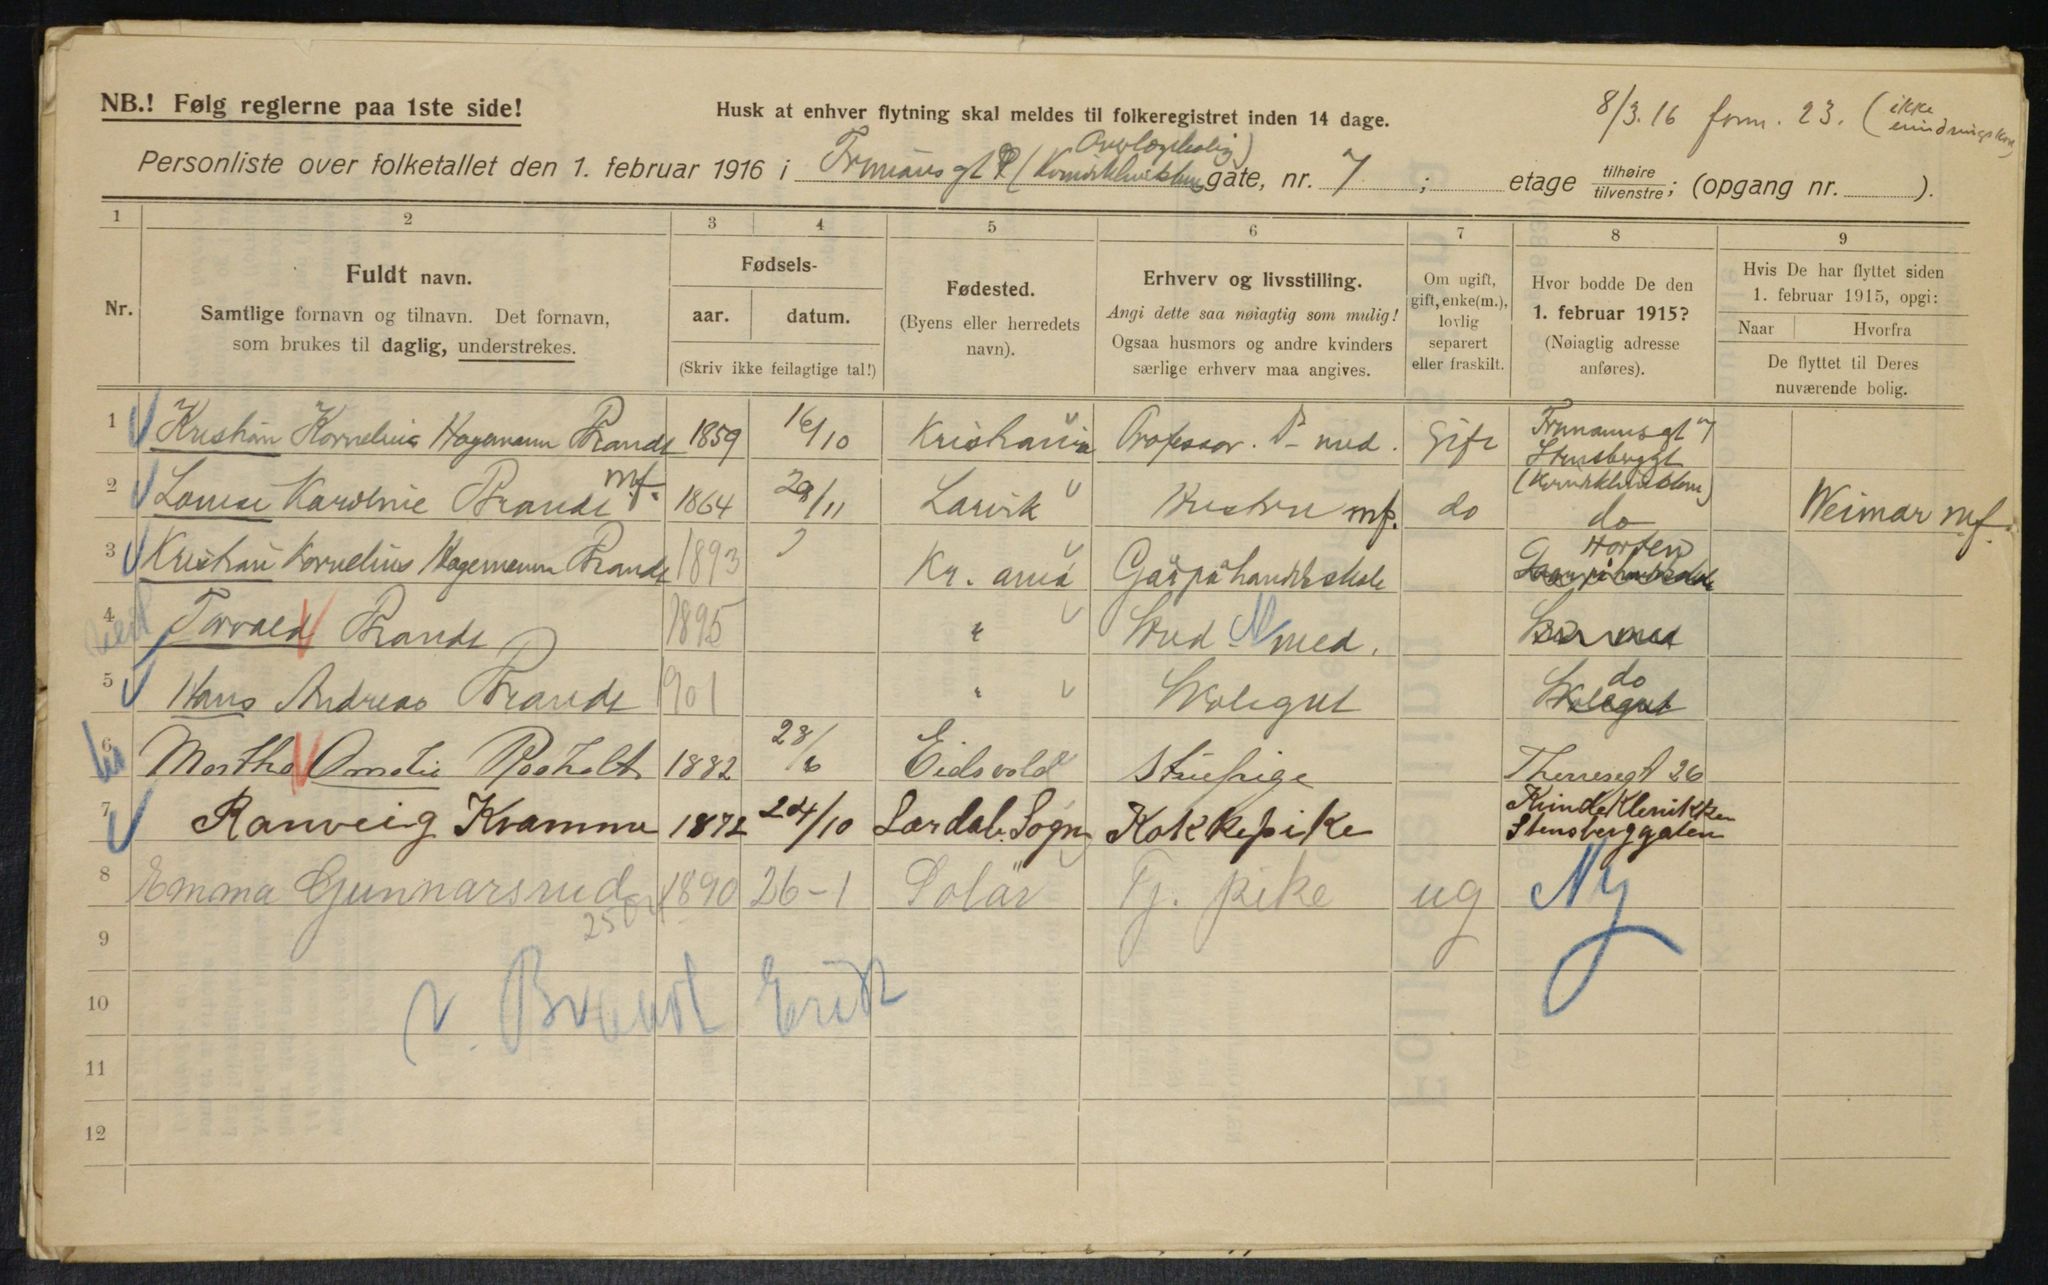 NB.! Følg reglerne paa 1ste side!
Husk at enhver flytning skal meldes til folkeregistret inden 14 dage.
8/3.16 form. 23. (ikke
Personliste over folketallet den 1. februar 1916 i gate, nr. 7 ; etage tilhøire / tilvenstre; (opgang nr. ).
1 2 3 4 5 6 7 8 9
Nr.
Fuldt navn.
Samtlige fornavn og tilnavn. Det fornavn,
som brukes til daglig, understrekes.
Fødsels-
aar. datum.
(Skriv ikke feilagtige tal!)
Fødested.
(Byens eller herredets
navn).
Erhverv og livsstilling.
Angi dette saa nøiagtig som mulig!
Ogsaa husmors og andre kvinders
særlige erhverv maa angives.
Om ugift,
gift, enke(m.),
lovlig
separert
eller fraskilt.
Hvor bodde De den
1. februar 1915?
(Nøiagtig adresse
anføres).
Hvis De har flyttet siden
1. februar 1915, opgi:
Naar Hvorfra
De flyttet til Deres
nuværende bolig.
1 Kristian Kornelius Hagemann Brandt 1859 16/10 Kristiania Professor. D- med. Gift
2 Louise Karoline Brandt mf. 1864 29/11 Larvik Hustru mf. do do Weimar mf.
3 Kristian Kornelius Hagemann Brandt 1893 Kr. ania Gaar på handelsskole Horten
4 Torvald Brandt 1895 " Stud. med.
5 Hans Andreas Brandt 1901 " Skolegut do
6 Martha Amalie Rooholt 1882 28/6 Eidsvold Stuepige Theresegt 26
7 Ranveig Kramme 1872 24/10 Lærdal. Sogn Kokkepike Kvindeklenikken
Stensberggaten
8 Emma Gunnarsrud 1890 26-1 Solør Tj. pike ug Ny
9
10 v. Brandt
11
12